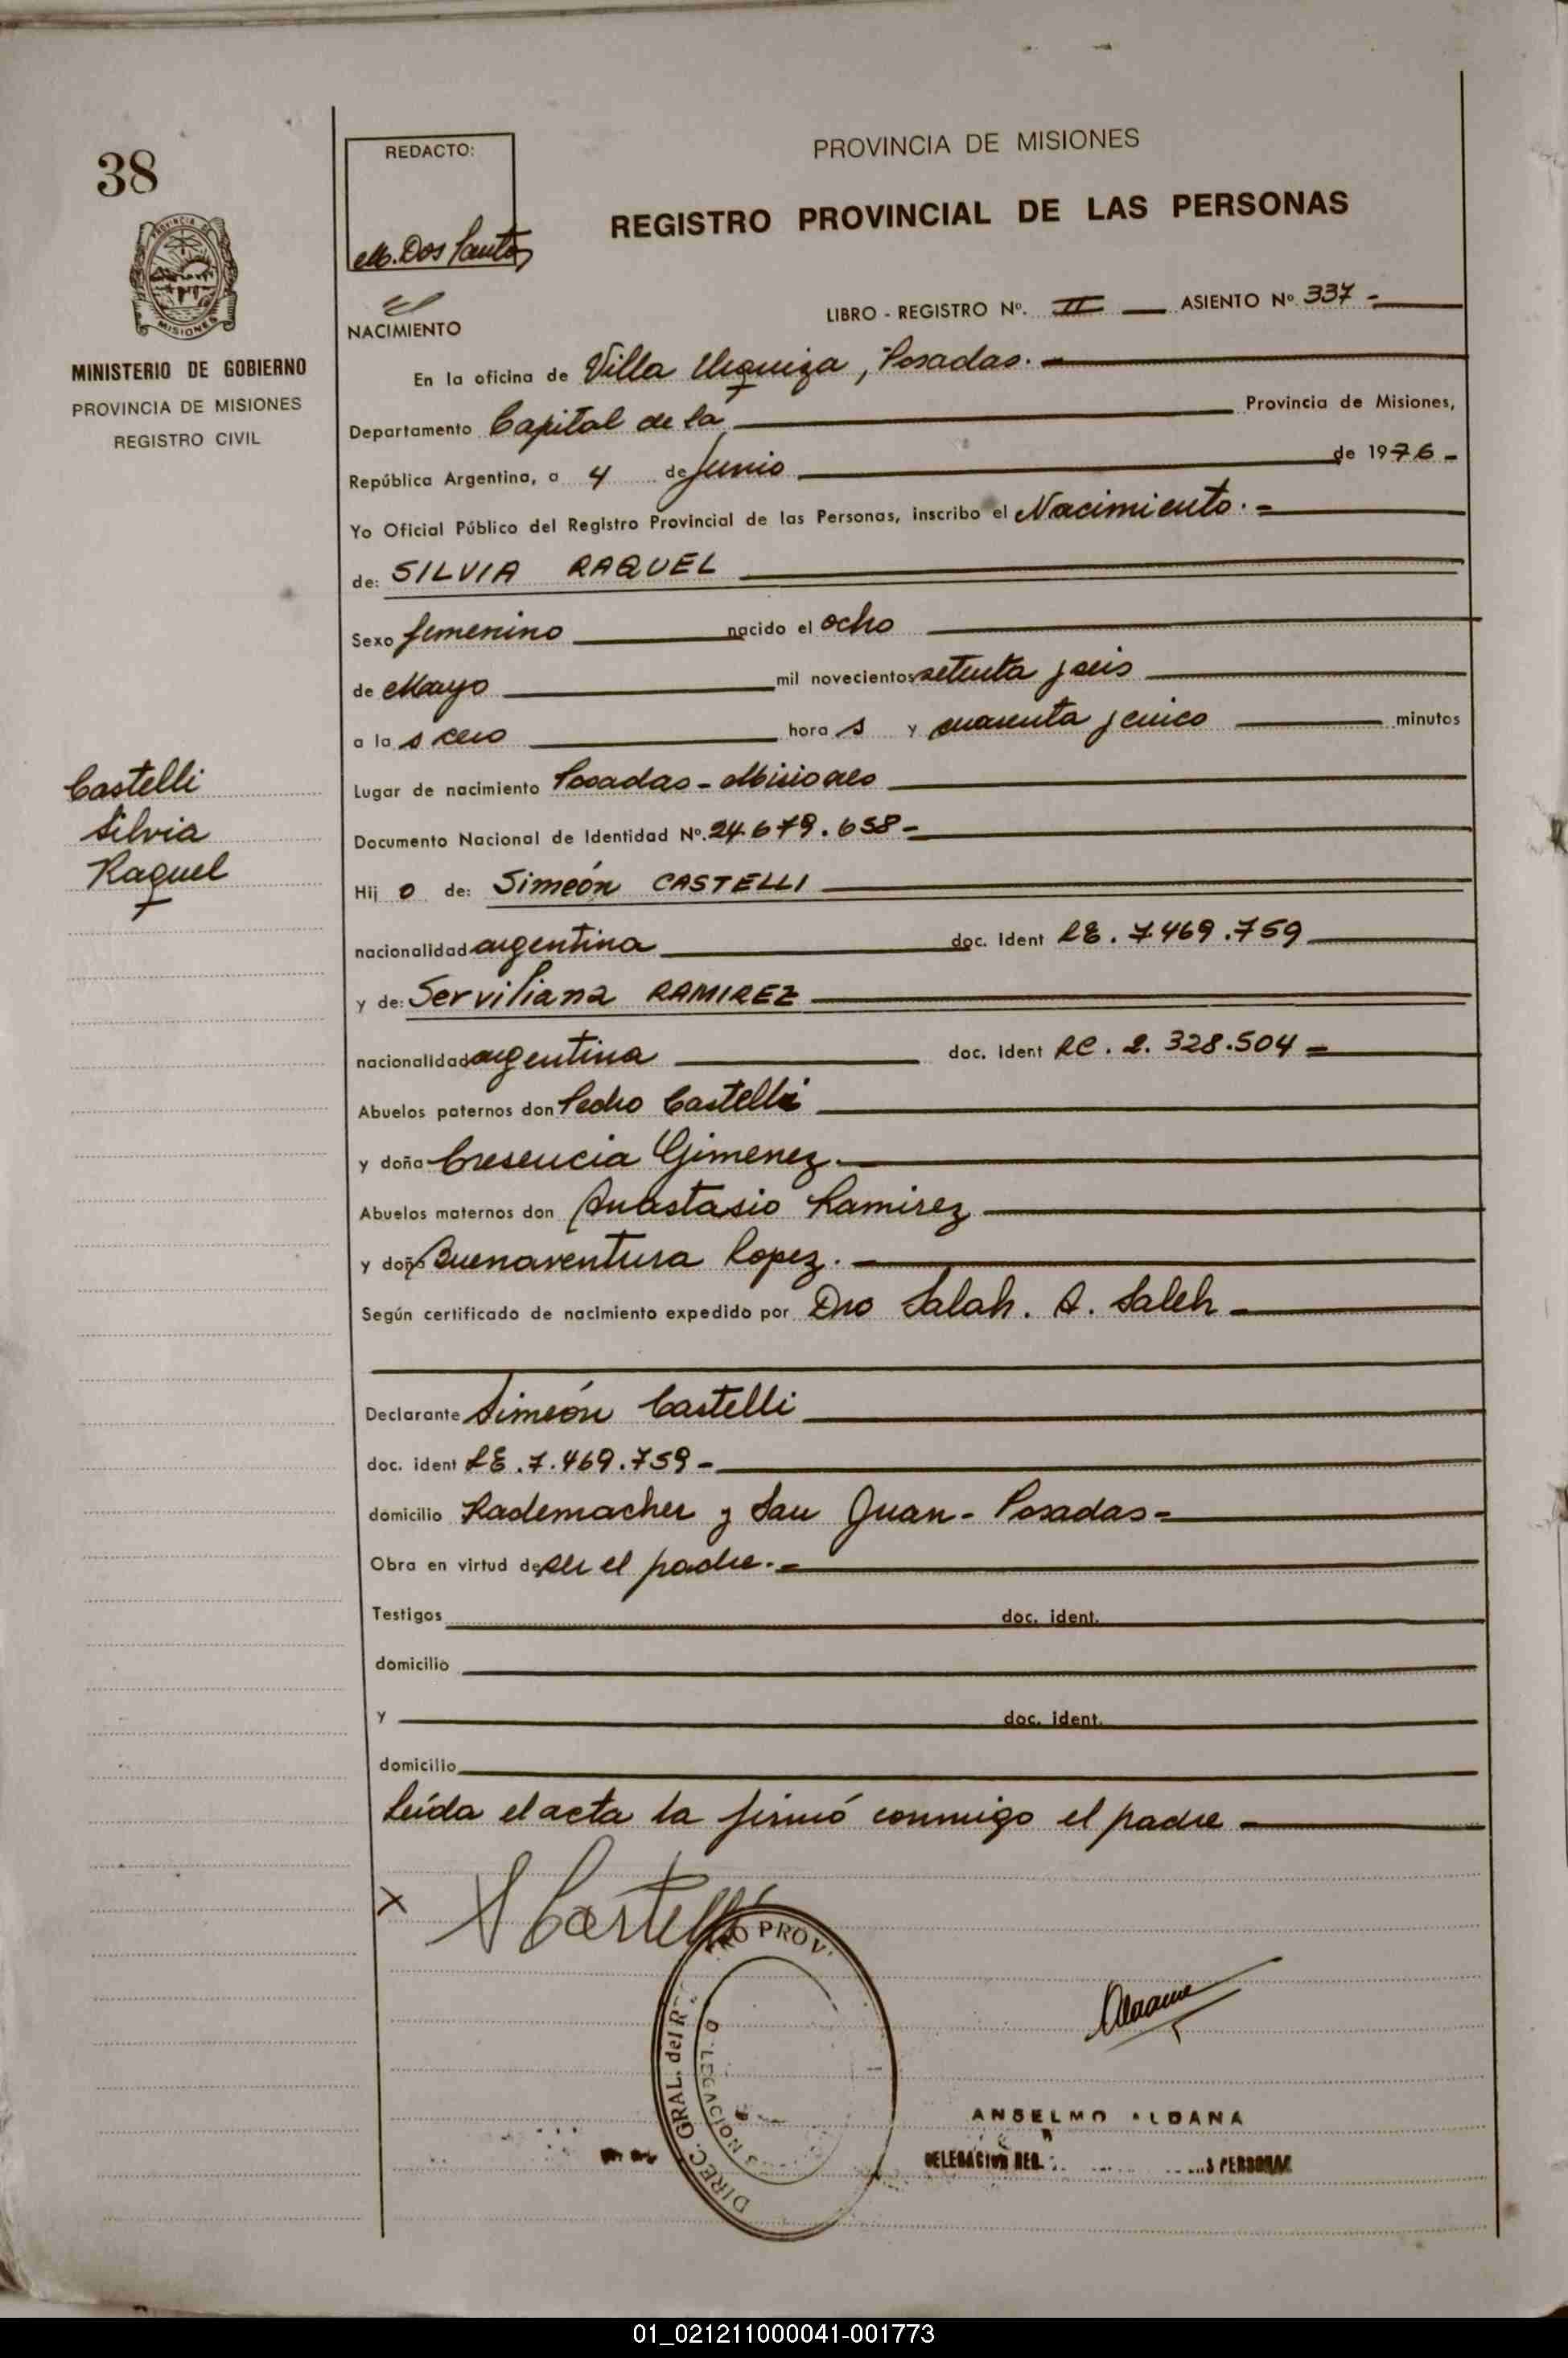 38
PROVINCIA DE
MISIONES
MINISTERIO DE GOBIERNO
PROVINCIA DE MISIONES
REGISTRO CIVIL
Castelli
Silvia
Raquel
REDACTO:
M. Dos Santos
PROVINCIA DE MISIONES
REGISTRO PROVINCIAL DE LAS PERSONAS
NACIMIENTO
LIBRO - REGISTRO Nº. II — ASIENTO Nº 337 -
En la oficina de Villa Urquiza, Posadas. -
Departamento Capital de la Provincia de Misiones,
República Argentina, a 4 de Junio de 1976 -
Yo Oficial Público del Registro Provincial de las Personas, inscribo el Nacimiento. =
de: SILVIA RAQUEL
Sexo femenino nacido el ocho
de Mayo mil novecientos setenta y seis
a la s cero hora s y cuarenta y cinco minutos
Lugar de nacimiento Posadas - Misiones
Documento Nacional de Identidad Nº. 24.679.658 -
Hij o de: Simeón CASTELLI
nacionalidad argentina doc. ident LE. 7.469.759
y de: Serviliana RAMIREZ
nacionalidad argentina doc. ident LC. 2.328.504 =
Abuelos paternos don Pedro Castelli
y doña Cresencia Gimenez. -
Abuelos maternos don Anastasio Ramirez
y doña Buenaventura Lopez. -
Según certificado de nacimiento expedido por Dro Salah. A. Saleh -
Declarante Simeón Castelli
doc. ident LE. 7.469.759 -
domicilio Rademacher y San Juan - Posadas =
Obra en virtud de ser el padre. =
Testigos doc. ident.
domicilio
y doc. ident.
domicilio
Leída el acta la firmó conmigo el padre -
X S Castelli
DIREC. GRAL. del R RO PROV
DELEGACION
ANSELMO ALDANA
DELEGACION REG. S PERSONAS
01_021211000041-001773